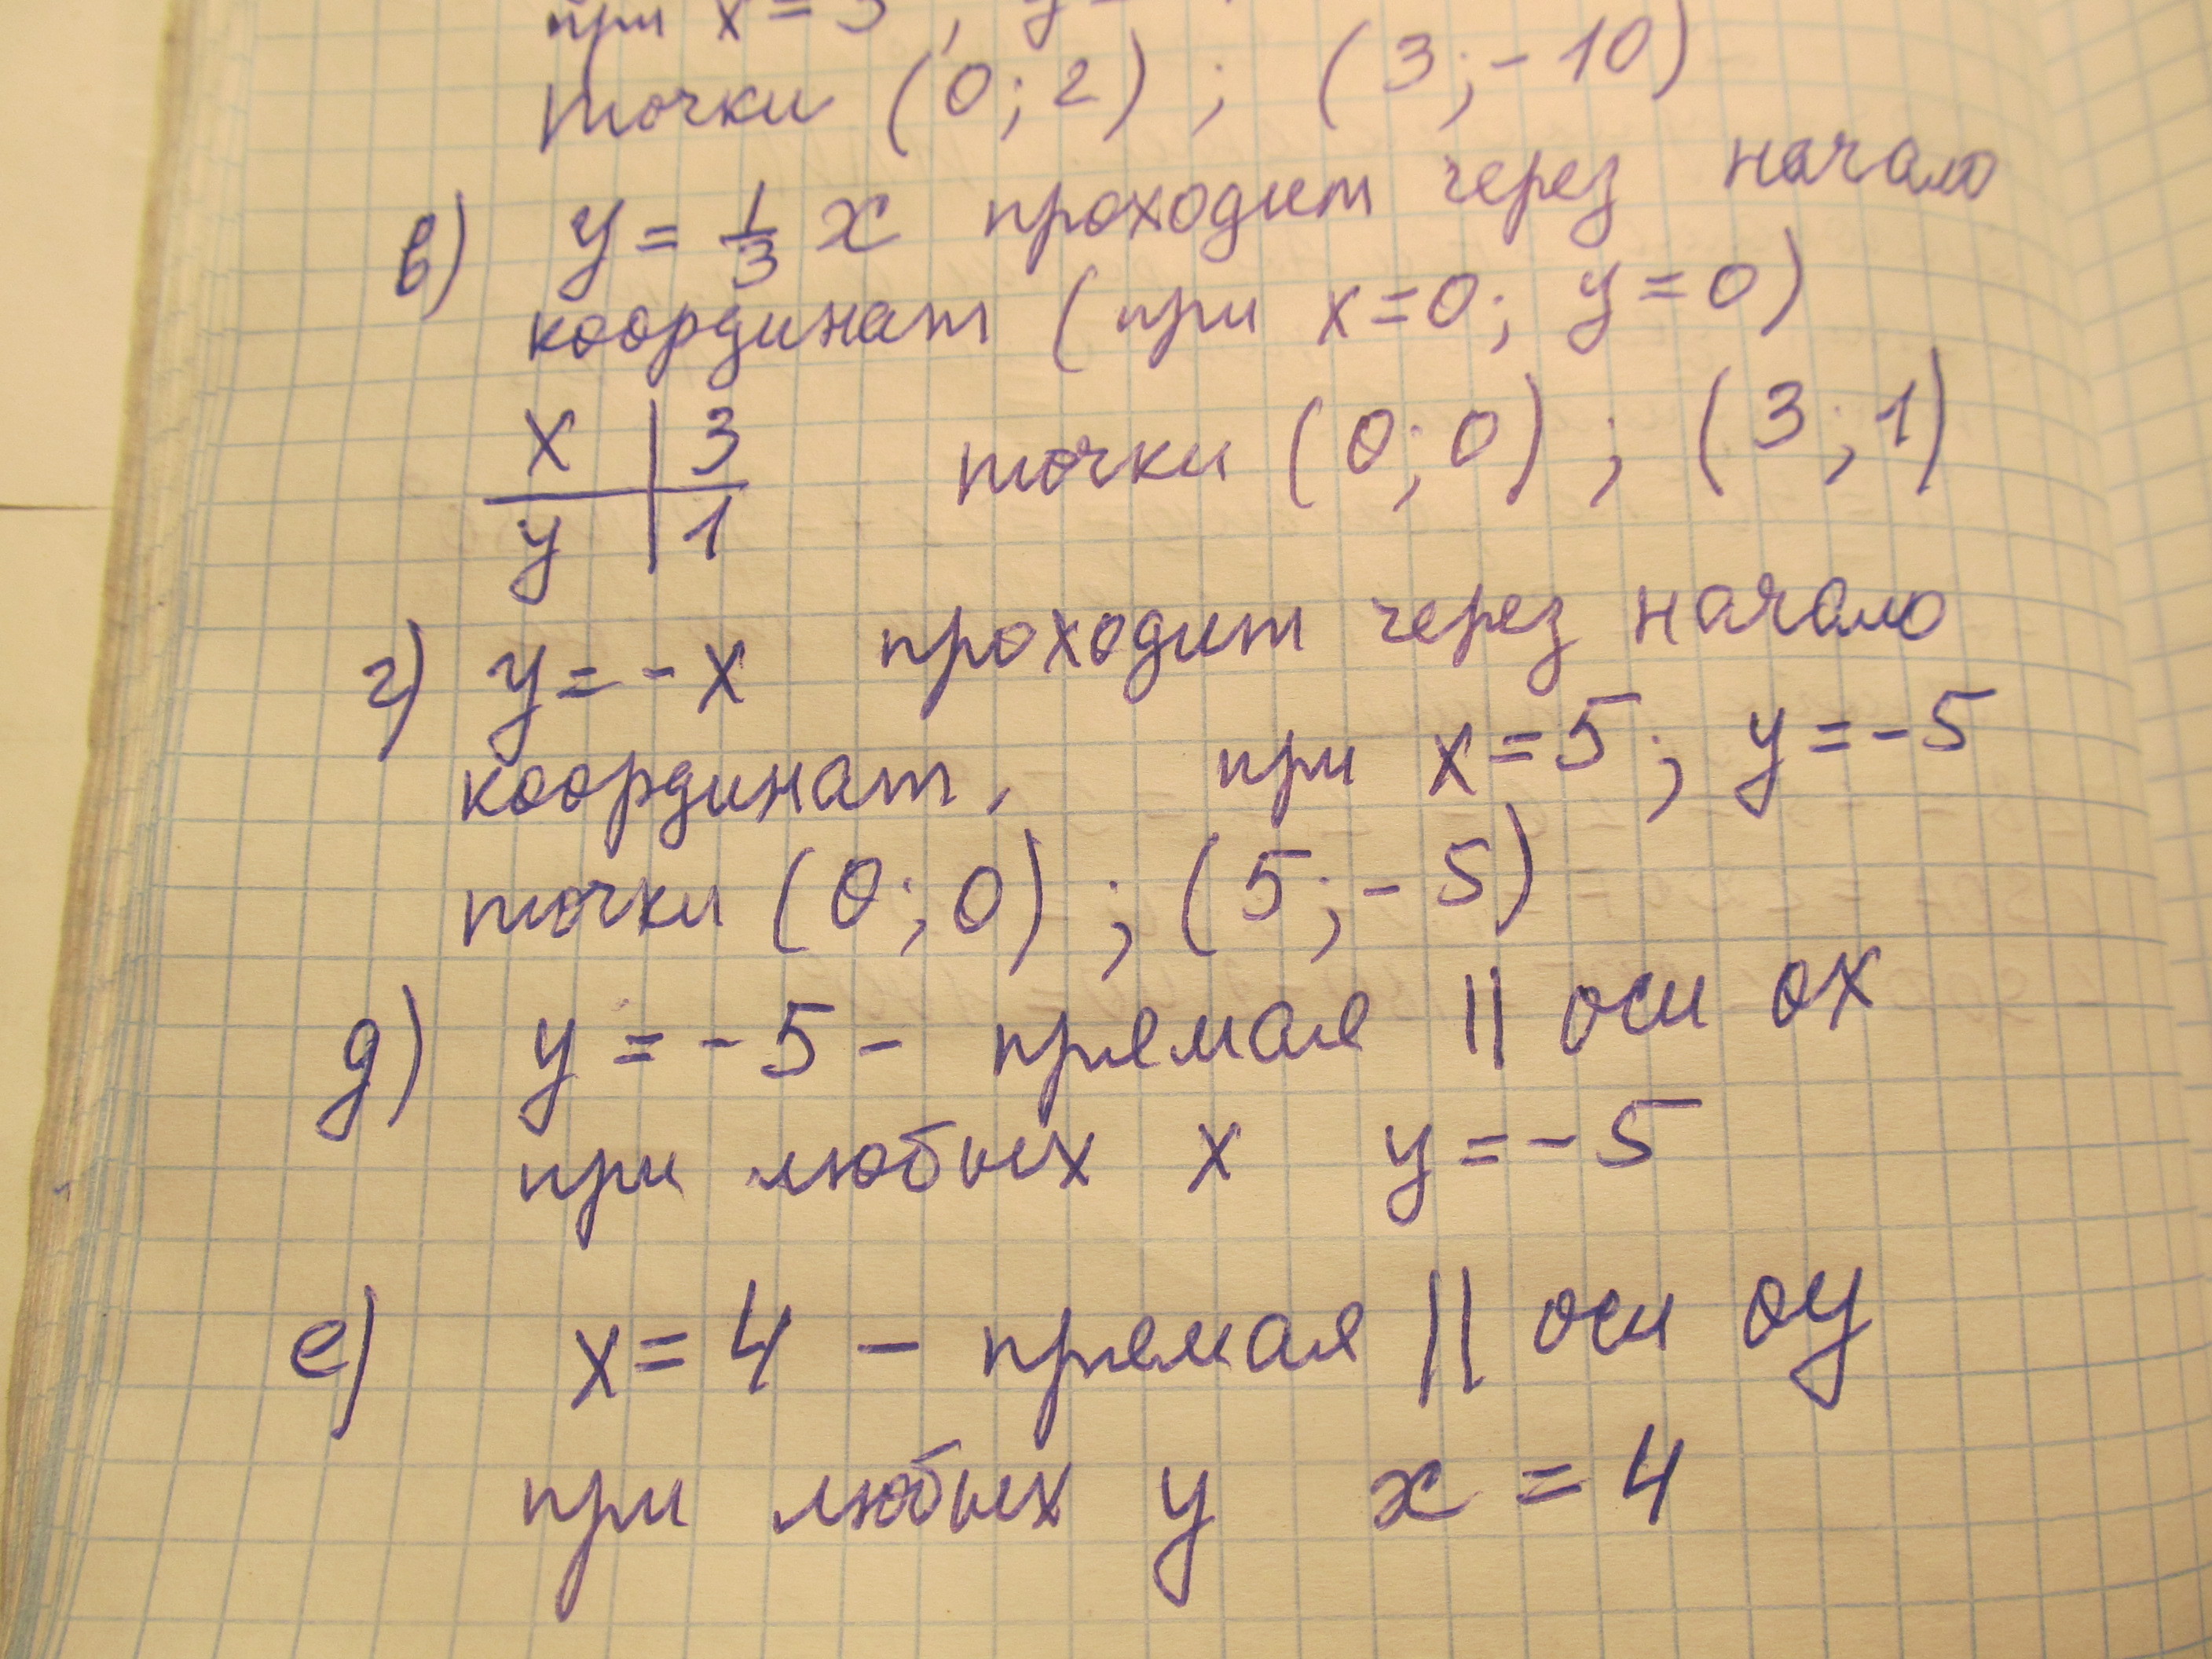 при x = 3, y =
точки (0; 2) ; (3; -10)
в) y = 1/3 x проходит через начало
координат (при x=0; y=0)
x | 3
точки (0; 0) ; (3; 1)
y | 1
г) y = -x проходит через начало
координат, при x=5; y=-5
точки (0; 0) ; (5; -5)
д) y = -5 - прямая || оси ox
при любых x y = -5
е) x = 4 - прямая || оси оу
при любых y x = 4